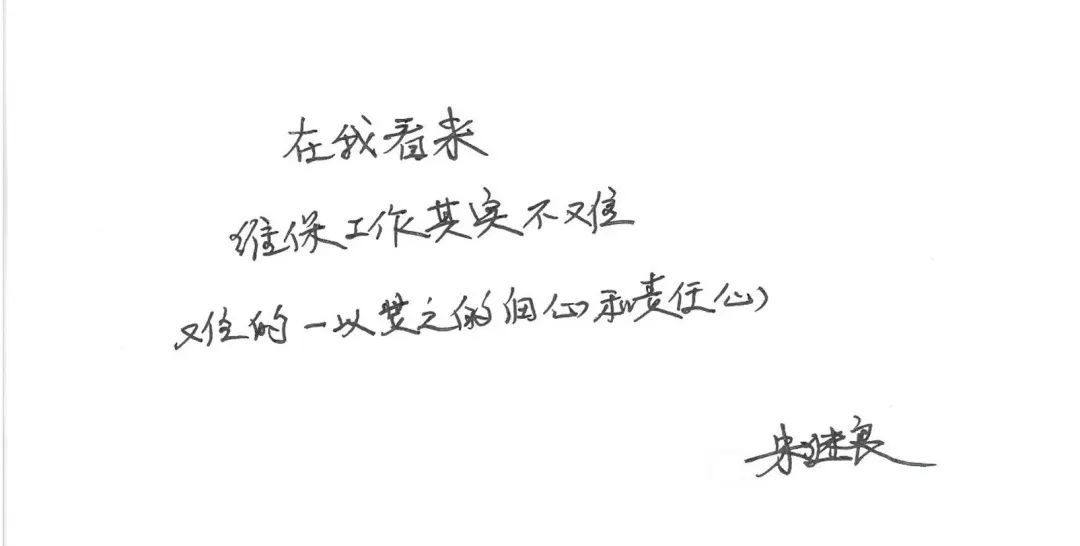 在我看来
维保工作其实不难
难的一以贯之的细心和责任心
朱继良